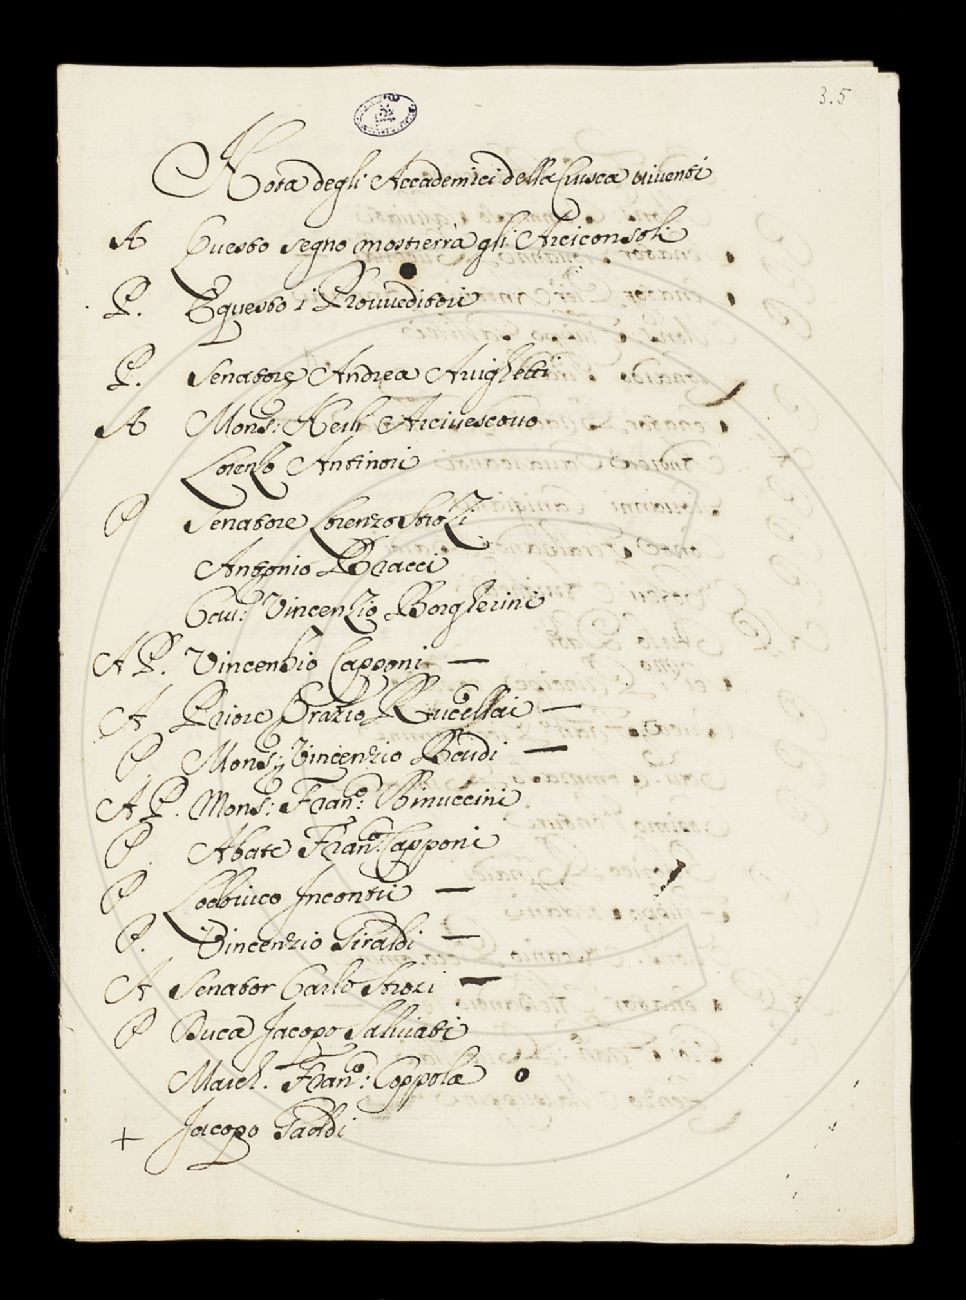 3.5
Nota degli Accademici della Crusca viventi
A Questo segno mostierrà gli Arciconsoli
P. E questo i Provveditori
P. Senatore Andrea Arighetti
A Mons: Nerli Arcivescovo
Lorenzo Antinori
P Senatore Lorenzo Strozzi
Antonio Bracci
Cav: Vincenzio Borgherini
A P. Vincenzio Capponi —
A Priore Orazio Rucellai —
P Mons: Vincenzio Bardi —
A P. Mons: Franc: Rinuccini
P Abate Franc: Capponi
P Lodovico Incontri —
P. Vincenzio Giraldi —
A Senator Carlo Strozi —
P Duca Jacopo Salviati
March. Franc: Coppola
+ Jacopo Gaddi